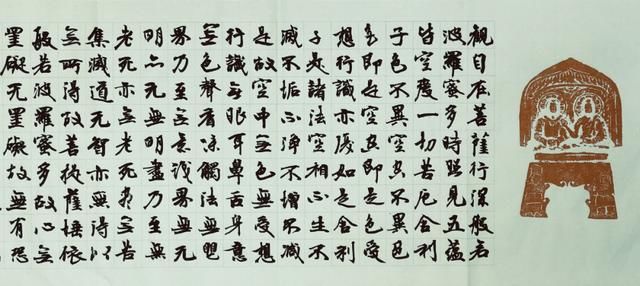 觀自在菩薩行深般若
波羅蜜多時照見五蘊
皆空度一切苦厄舍利
子色不異空空不異色
色即是空空即是色受
想行識亦復如是舍利
子是諸法空相不生不
滅不垢不淨不增不減
是故空中無色無受想
行識無眼耳鼻舌身意
無色聲香味觸法無眼
界乃至無意識界無无
明亦无無明盡乃至無
老死亦無老死盡無苦
集滅道无智亦無得以
無所得故菩提薩埵依
般若波羅蜜多故心無
罣礙无罣礙故無有恐